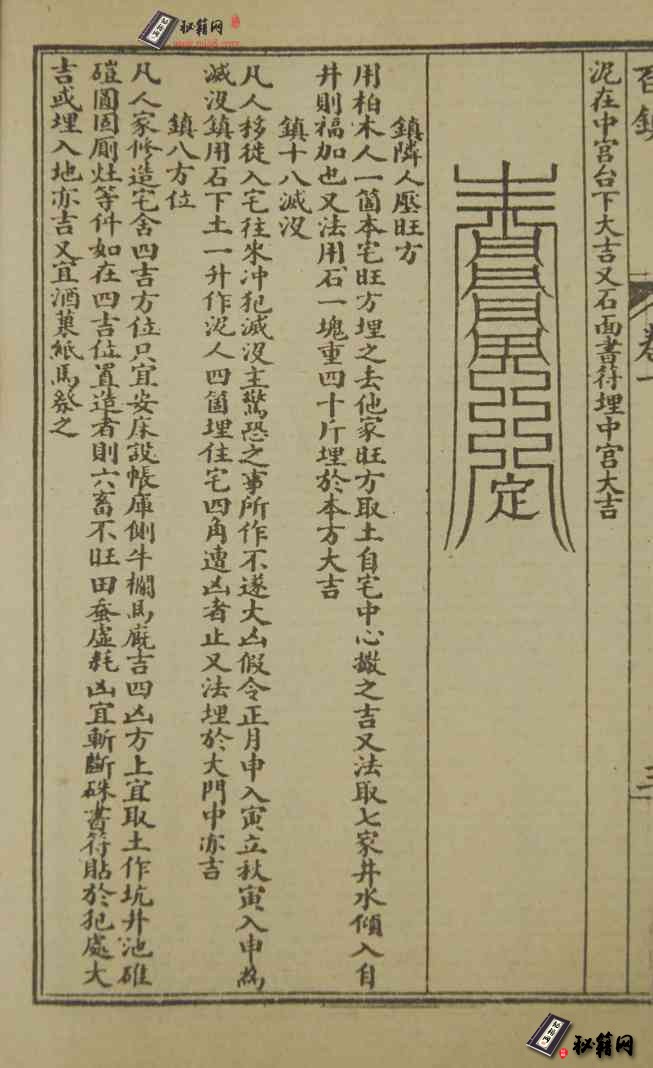 秘籍网
鎮
卷一
三
泥在中宮台下大吉又石面書符埋中宮大吉
定
鎮隣人壓旺方
用柏木人一箇本宅旺方埋之去他家旺方取土自宅中心撒之吉又法取七家井水傾入自
井則福加也又法用石一塊重四十斤埋於本方大吉
鎮十八滅没
凡人移徙入宅往來冲犯滅没主驚恐之事所作不遂大凶假令正月申入寅立秋寅入申為
滅没鎮用石下土一升作泥人四箇埋住宅四角遭凶者止又法埋於大門中亦吉
鎮八方位
凡人家修造宅舍四吉方位只宜安床設帳庫側牛欄馬廐吉四凶方上宜取土作坑井池碓
磑圊圂厠灶等件如在四吉位置造者則六畜不旺田蚕虚耗凶宜斬斷硃書符貼於犯處大
吉或埋入地亦吉又宜酒菓紙馬祭之
秘籍网